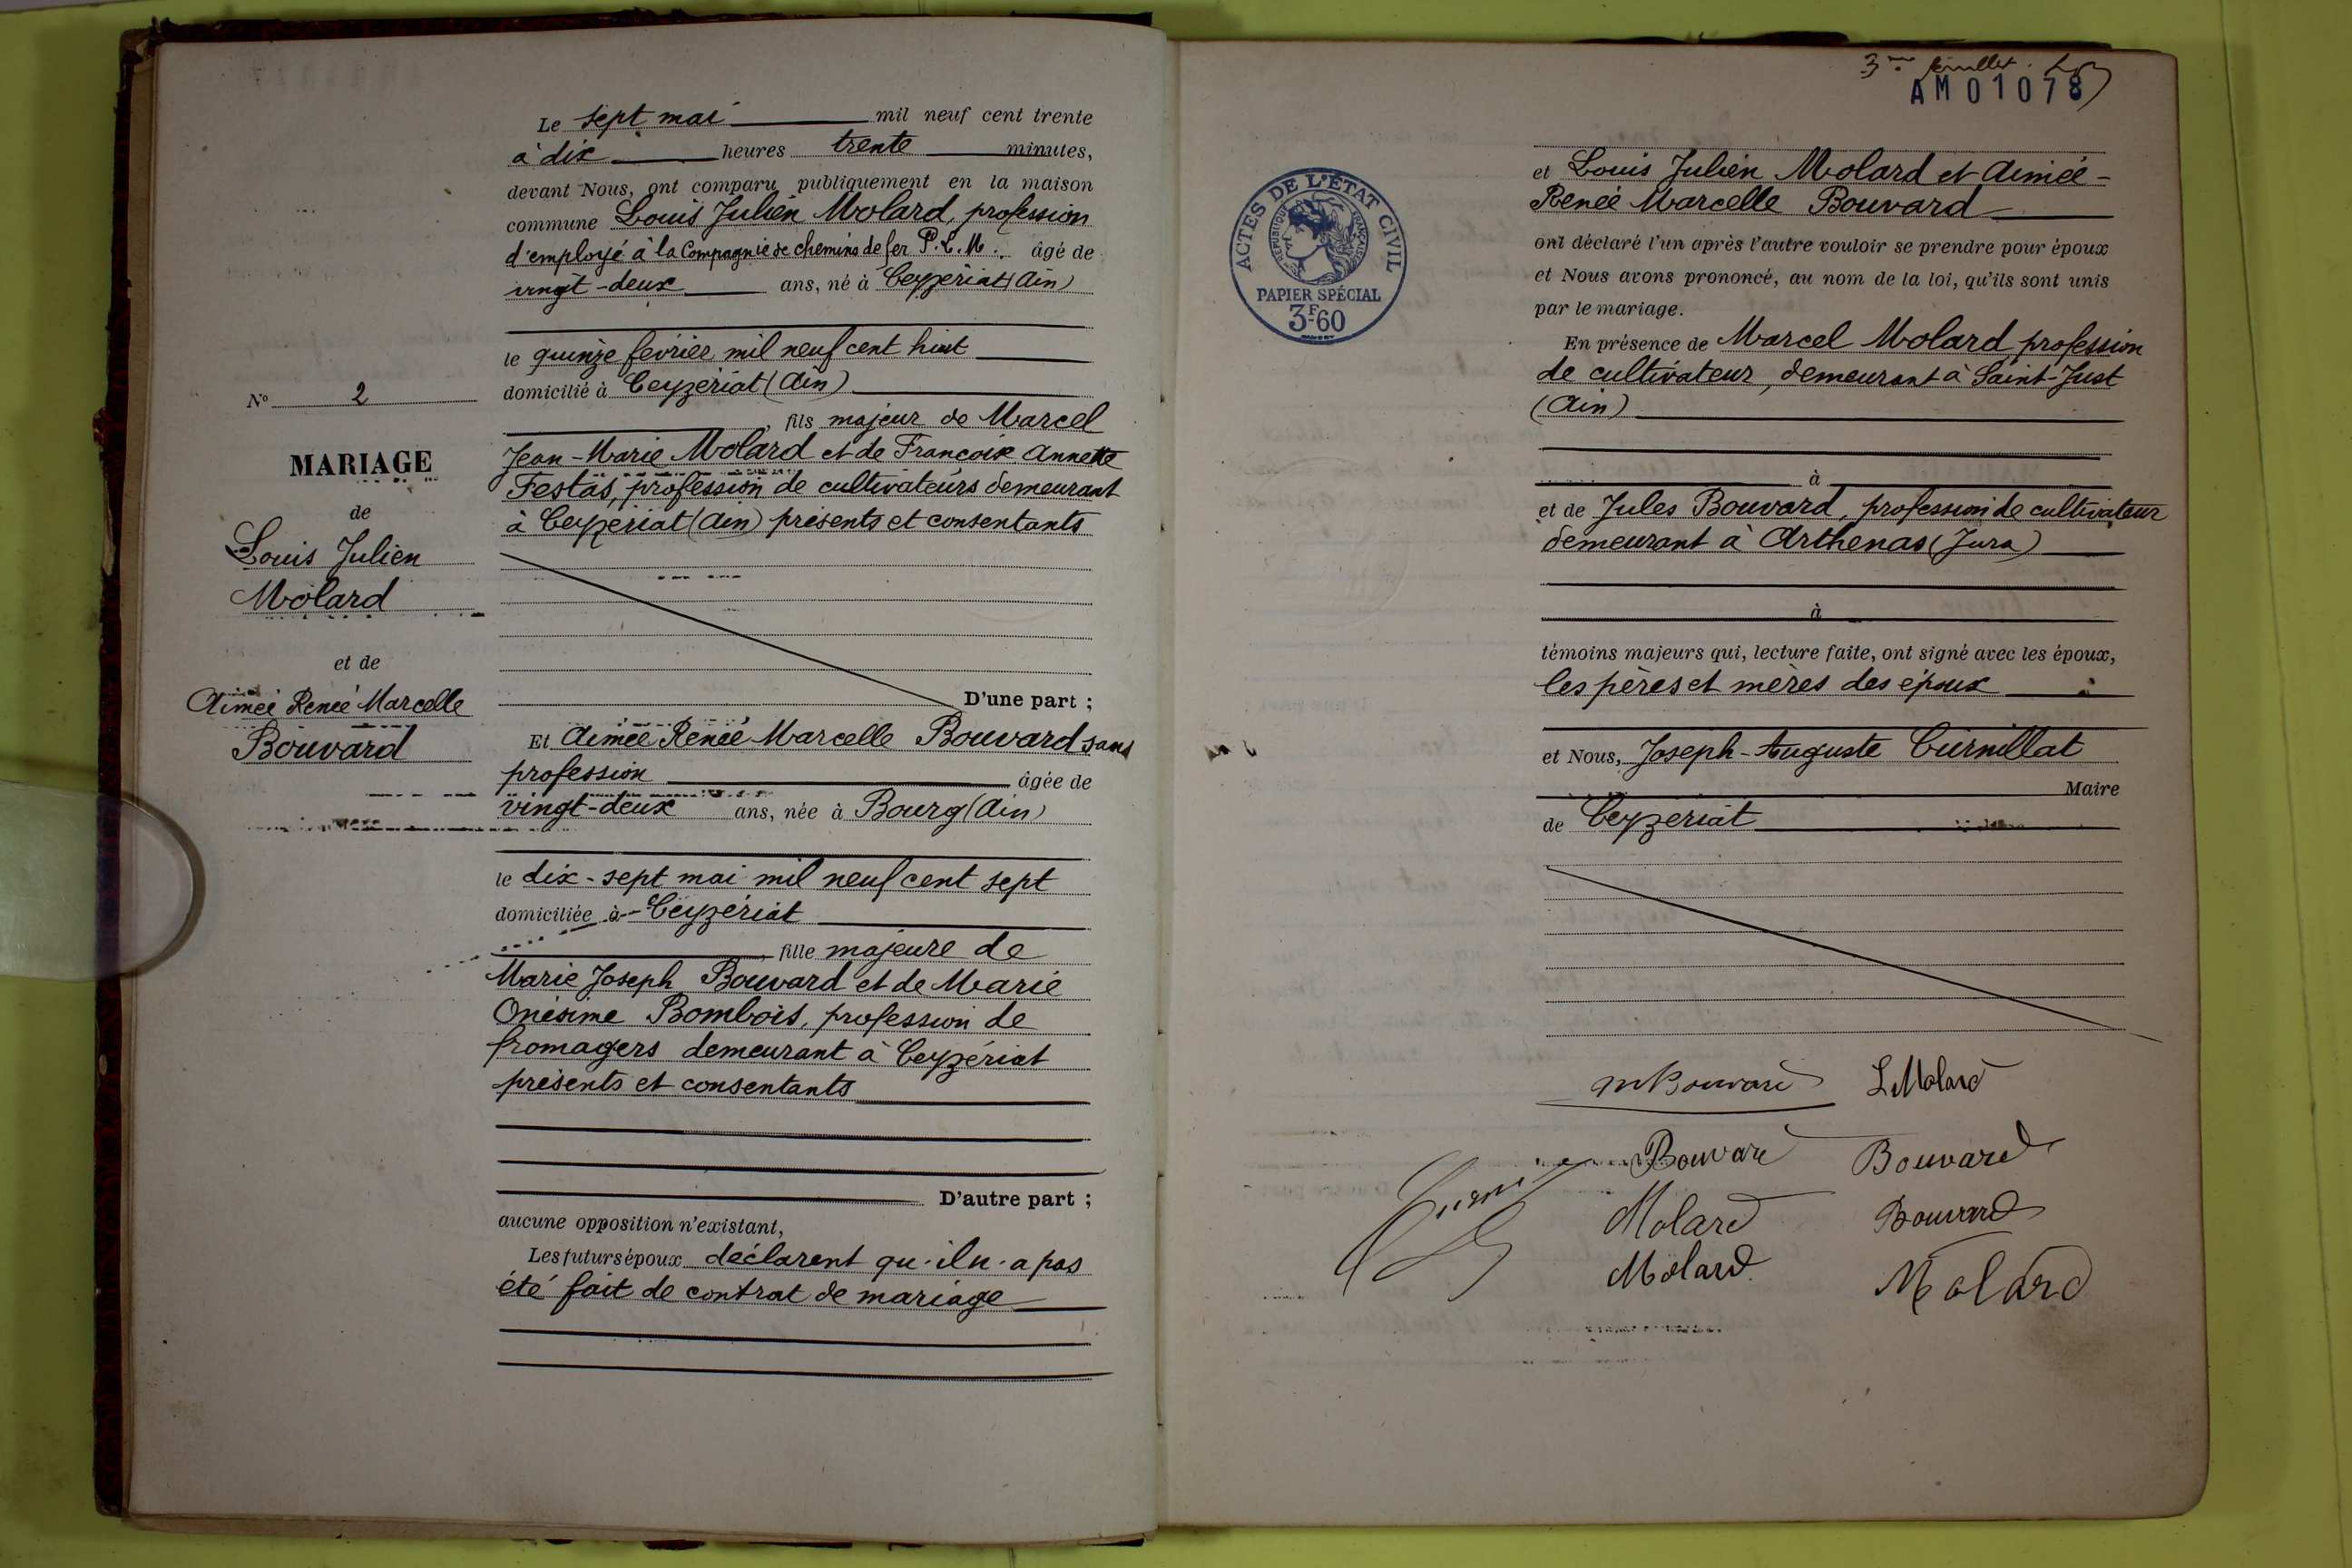 Le sept mai mil neuf cent trente
à dix heures trente minutes,
devant Nous, ont comparu publiquement en la maison
commune Louis Julien Molard, profession
d'employé à la Compagnie de chemins de fer P.L.M. âgé de
vingt-deux ans, né à Ceyzériat (Ain)
le quinze février mil neuf cent huit
domicilié à Ceyzériat (Ain)
fils majeur de Marcel
Jean-Marie Molard et de Françoise Annette
Festas, profession de cultivateurs demeurant
à Ceyzériat (Ain) présents et consentants
D'une part ;
Nº 2
MARIAGE
de
Louis Julien
Molard
et de
Aimée Renée Marcelle
Bouvard
Et Aimée Renée Marcelle Bouvard sans
profession âgée de
vingt-deux ans, née à Bourg (Ain)
le dix-sept mai mil neuf cent sept
domiciliée à Ceyzériat
fille majeure de
Marie Joseph Bouvard et de Marie
Onésime Bombois, profession de
fromagers demeurant à Ceyzériat
présents et consentants
D'autre part ;
aucune opposition n'existant,
Les futurs époux déclarent qu'il n'a pas
été fait de contrat de mariage
3me feuillet.
AM01078
ACTES DE L'ÉTAT CIVIL
RÉPUBLIQUE FRANÇAISE
PAPIER SPÉCIAL
3F-60
et Louis Julien Molard et Aimée-
Renée Marcelle Bouvard
ont déclaré l'un après l'autre vouloir se prendre pour époux
et Nous avons prononcé, au nom de la loi, qu'ils sont unis
par le mariage.
En présence de Marcel Molard, profession
de cultivateur, demeurant à Saint-Just
(Ain)
à
et de Jules Bouvard, profession de cultivateur
demeurant à Arthenas (Jura)
à
témoins majeurs qui, lecture faite, ont signé avec les époux,
les pères et mères des époux
et Nous, Joseph-Auguste Curnillat
Maire
de Ceyzériat
M Bouvard L Molard
Bouvard Bouvard
Molard Bouvard
Molard Molard